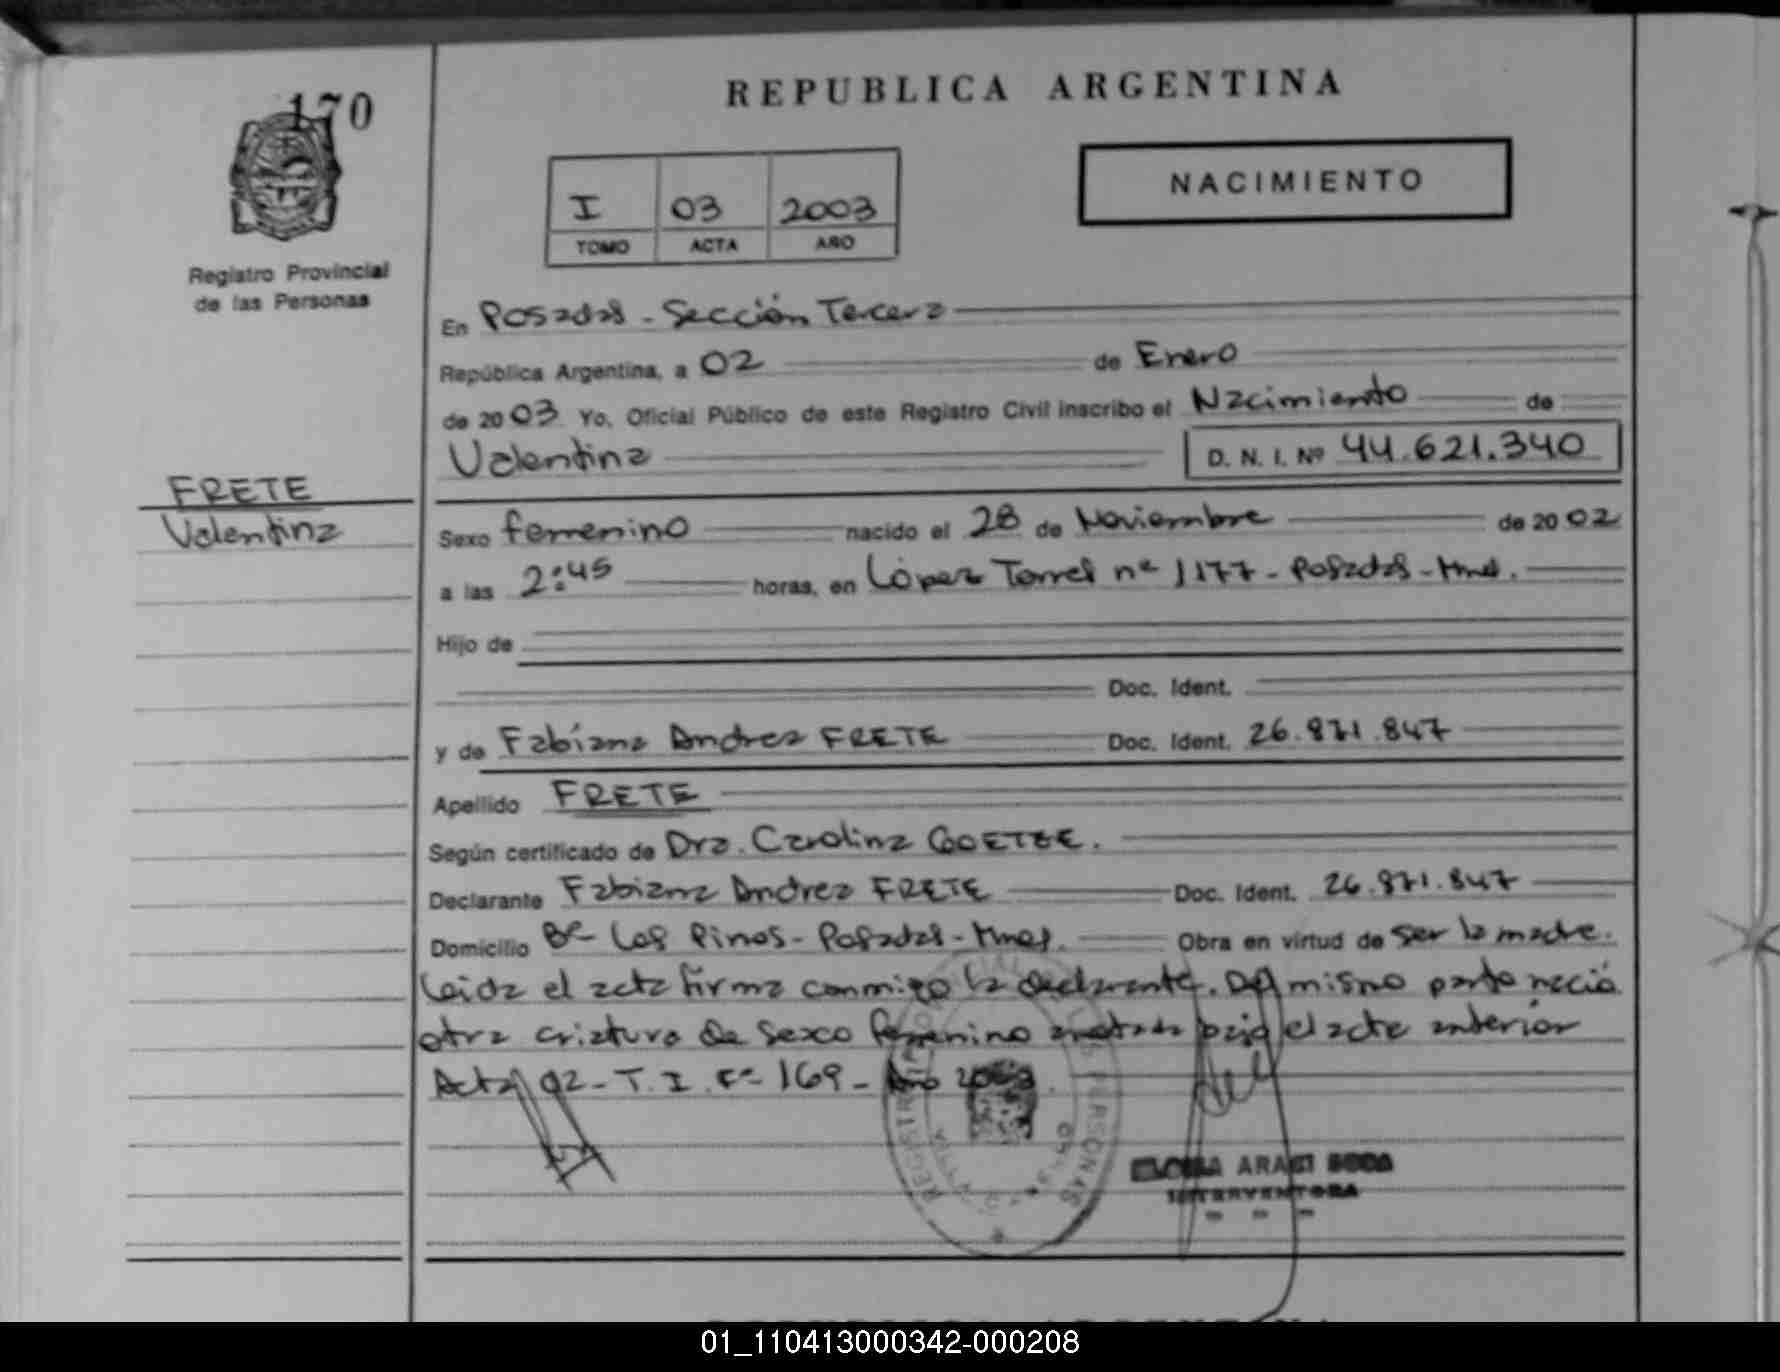 170
REPUBLICA ARGENTINA
NACIMIENTO
I 03 2003
TOMO ACTA AÑO
Registro Provincial
de las Personas
En Posadas - Sección Tercera
República Argentina, a 02 de Enero
de 2003 Yo, Oficial Público de este Registro Civil inscribo el Nacimiento de
Valentina D. N. I. Nº 44.621.340
FRETE
Valentina
Sexo femenino nacido el 28 de Noviembre de 2002
a las 2:45 horas, en López Torres nº 1177 - Posadas - Mnes.
Hijo de
Doc. Ident.
y de Fabiana Andrea FRETE Doc. Ident. 26.871.847
Apellido FRETE
Según certificado de Dra. Carolina GOETZE.
Declarante Fabiana Andrea FRETE Doc. Ident. 26.871.847
Domicilio Bº Los Pinos - Posadas - Mnes. Obra en virtud de ser la madre.
Leida el acta firma conmigo la declarante. Del mismo parto nació
otra criatura de sexo femenino anotada bajo el acta anterior
Acta 02 - T. I. Fº 169 - Año 2003.
REGISTRO PROVINCIAL DE LAS PERSONAS
INTERVENTORA
01_110413000342-000208